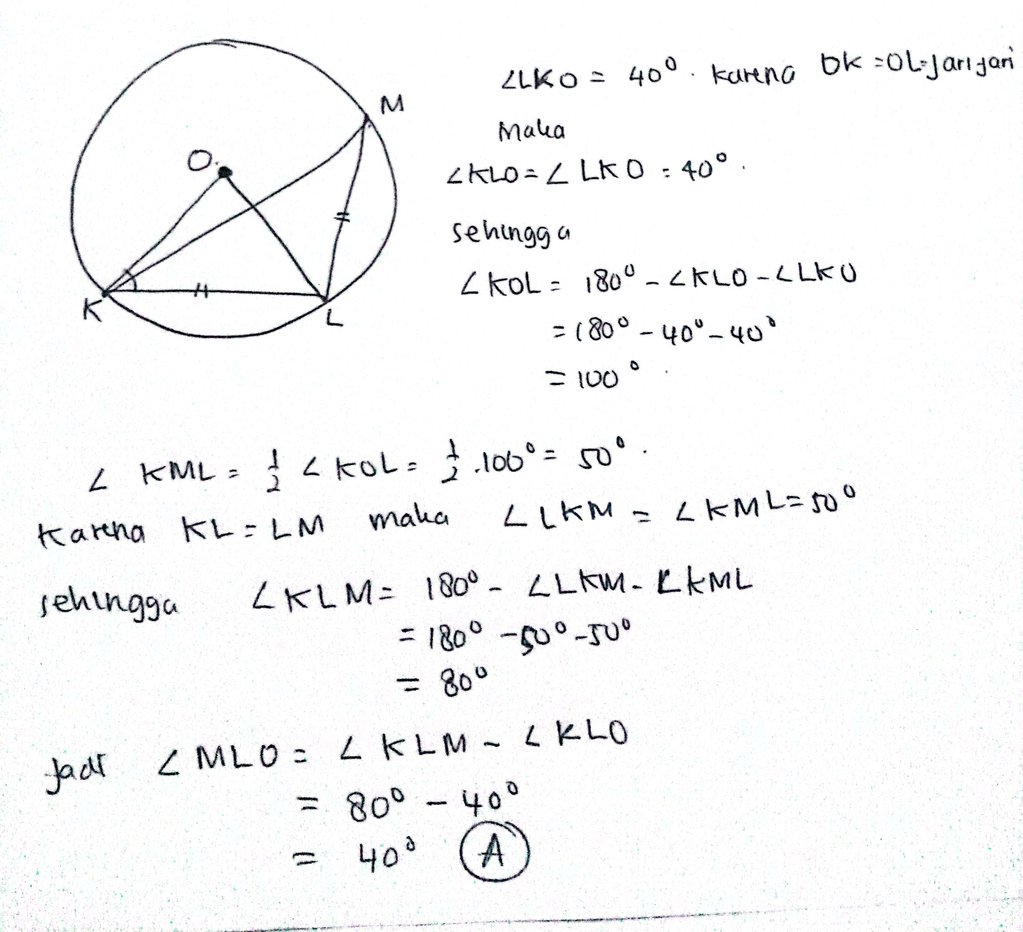 ∠LKO = 40°. karena OK = OL = Jari jari
Maka
∠KLO = ∠LKO = 40°.
sehingga
∠KOL = 180° - ∠KLO - ∠LKO
= 180° - 40° - 40°
= 100°.
M
O
K
L
∠ KML = 1/2 ∠ KOL = 1/2 .100° = 50°.
Karena KL = LM maka ∠LKM = ∠KML = 50°
sehingga ∠KLM = 180° - ∠LKM - ∠KML
= 180° - 50° - 50°
= 80°
Jadi ∠MLO = ∠KLM - ∠KLO
= 80° - 40°
= 40° A